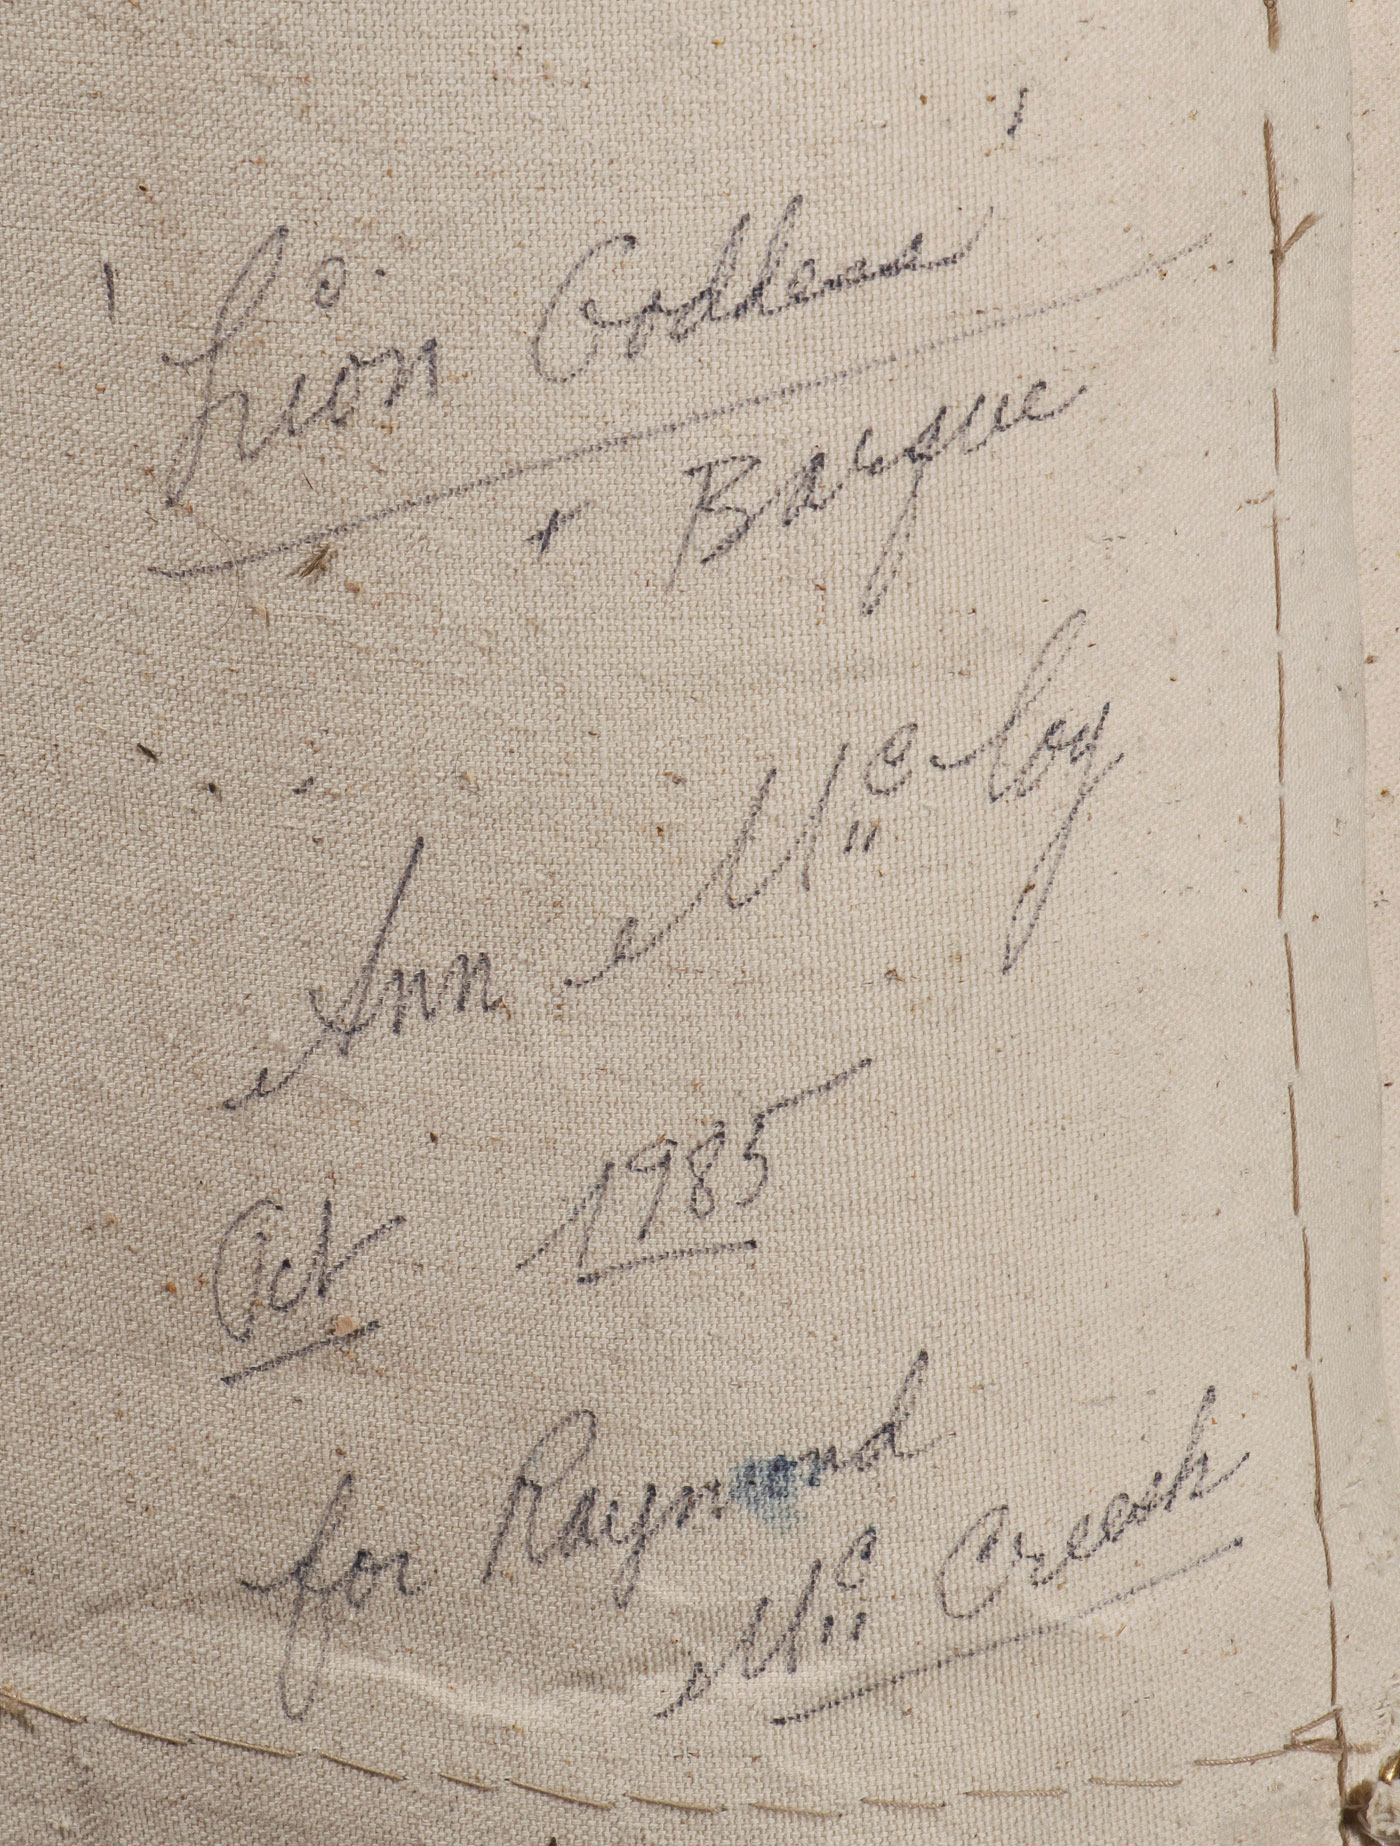 'Lion Goddess'
+ Barque
Ann Mc Coy
Oct 1985
for Raymond
Mc Creesh